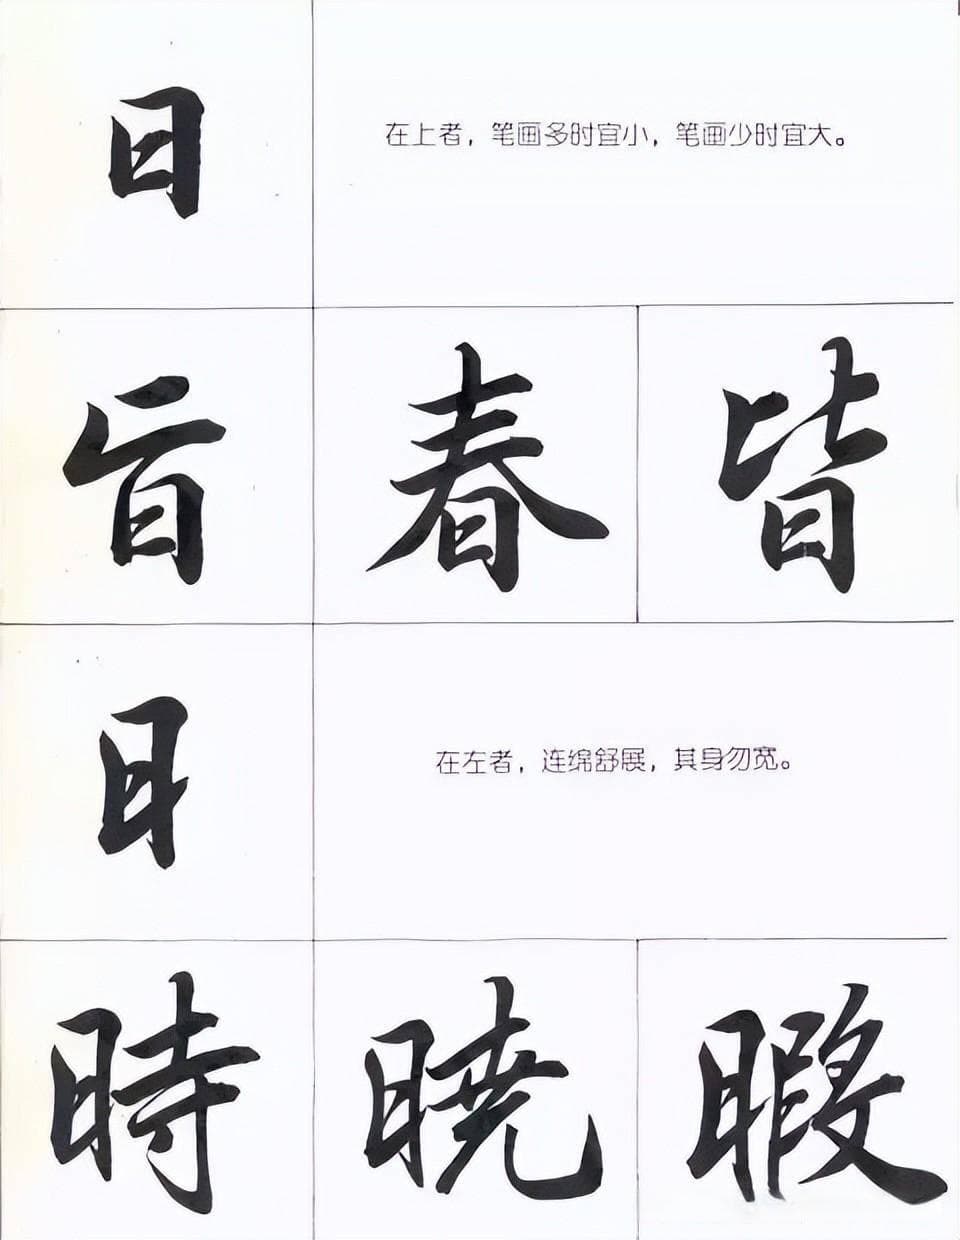 日
在上者，笔画多时宜小，笔画少时宜大。
旨 春 皆
日
在左者，连绵舒展，其身勿宽。
時 暁 暇